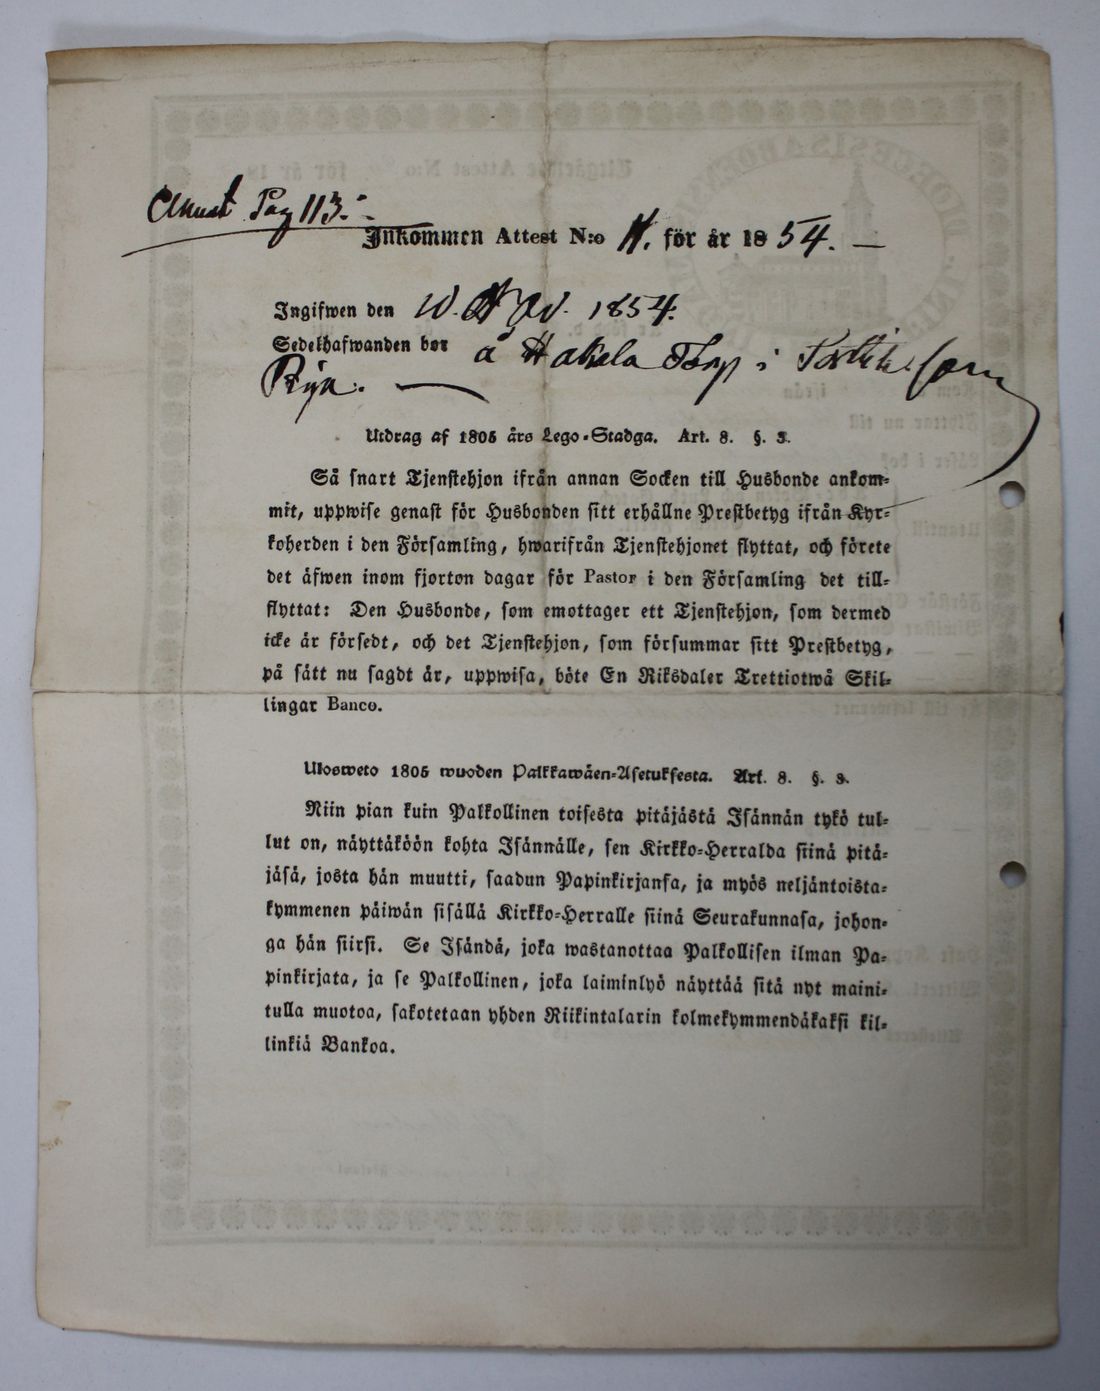 Pag 113.
Inkommen Attest N:o 11. för år 1854. —
Ingifwen den 10. Nov. 1854.
Sedelhafwanden bor å Hakala Torp i
Rjn. —
Utdrag af 1805 års Lego-Stadga. Art. 8. §. 3.
Så snart Tjenstehjon ifrån annan Socken till Husbonde ankom-
mit, uppwise genast för Husbonden sitt erhållne Prestbetyg ifrån Kyr-
koherden i den Församling, hwarifrån Tjenstehjonet flyttat, och förete
det äfwen inom fjorton dagar för Pastor i den Församling det till-
flyttat: Den Husbonde, som emottager ett Tjenstehjon, som dermed
icke är försedt, och det Tjenstehjon, som försummar sitt Prestbetyg,
på sätt nu sagdt är, uppwisa, böte En Riksdaler Trettiotwå Skil-
lingar Banco.
Ulosweto 1805 wuoden Palkkawäen-Asetuksesta. Art. 8. §. 3.
Niin pian kuin Palkollinen toisesta pitäjästä Isännän tykö tul-
lut on, näyttäköön kohta Isännälle, sen Kirkko-Herralda siinä pitä-
jäsä, josta hän muutti, saadun Papinkirjansa, ja myös neljäntoista-
kymmenen päiwän sisällä Kirkko-Herralle siinä Seurakunnasa, johon-
ga hän siirsi. Se Isändä, joka wastanottaa Palkollisen ilman Pa-
pinkirjata, ja se Palkollinen, joka laiminlyö näyttää sitä nyt maini-
tulla muotoa, sakotetaan yhden Riikintalarin kolmekymmendäkaksi kil-
linkiä Bankoa.